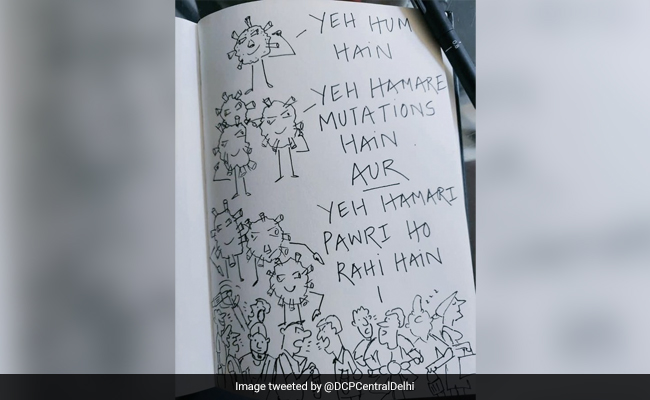 YEH HUM
HAIN
YEH HAMARE
MUTATIONS
HAIN
AUR
YEH HAMARI
PAWRI HO
RAHI HAIN
Image tweeted by @DCPCentralDelhi